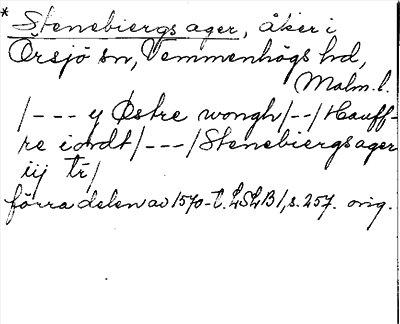 * Stenebiergs ager, åker i
Örsjö sn, Vemmenhögs hd,
Malm.l.
/--- y Østre wongh/--/Hauff-
re iordt/---/Stenebiergsager
iij tr/
förra delen av 1570-t. LSLB 1, s. 257. orig.